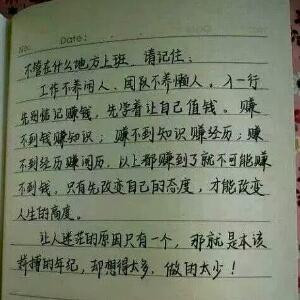 No.
Date:
不管在什么地方上班，请记住：
工作不养闲人、团队不养懒人。入一行
先别惦记赚钱，先学着让自己值钱。赚
不到钱赚知识；赚不到知识赚经历；赚
不到经历赚阅历，以上都赚到了就不可能赚
不到钱，只有先改变自己的态度，才能改变
人生的高度。
让人迷茫的原因只有一个，那就是本该
拼搏的年纪，却想得太多，做的太少！